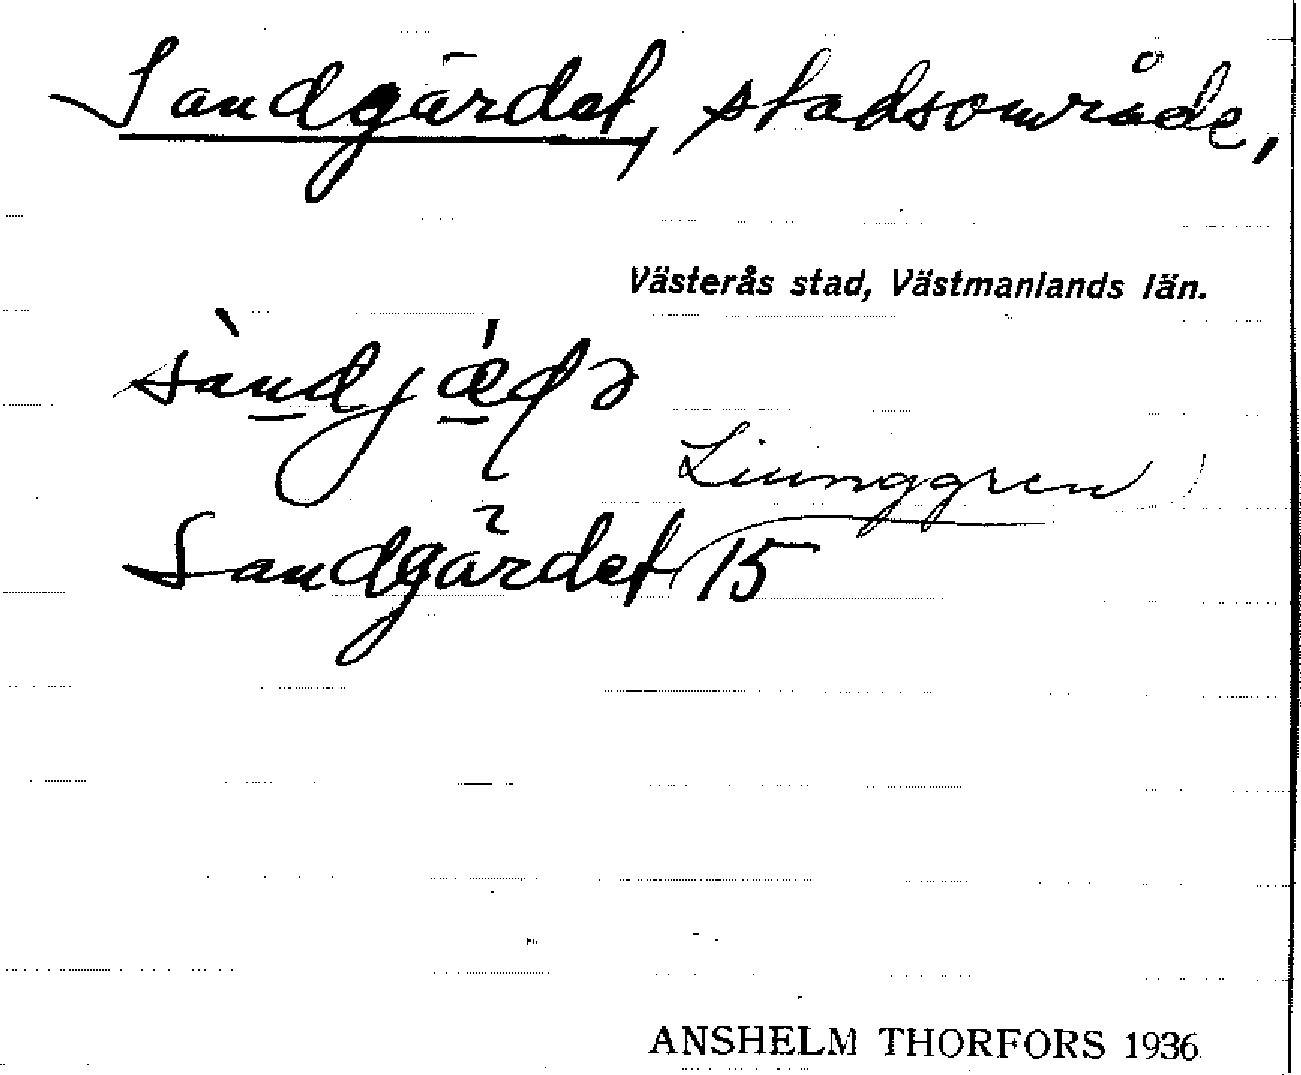 Sandgärdet, stadsområde,
Västerås stad, Västmanlands län.
Ljunggren)
Sandgärdet 15
ANSHELM THORFORS 1936